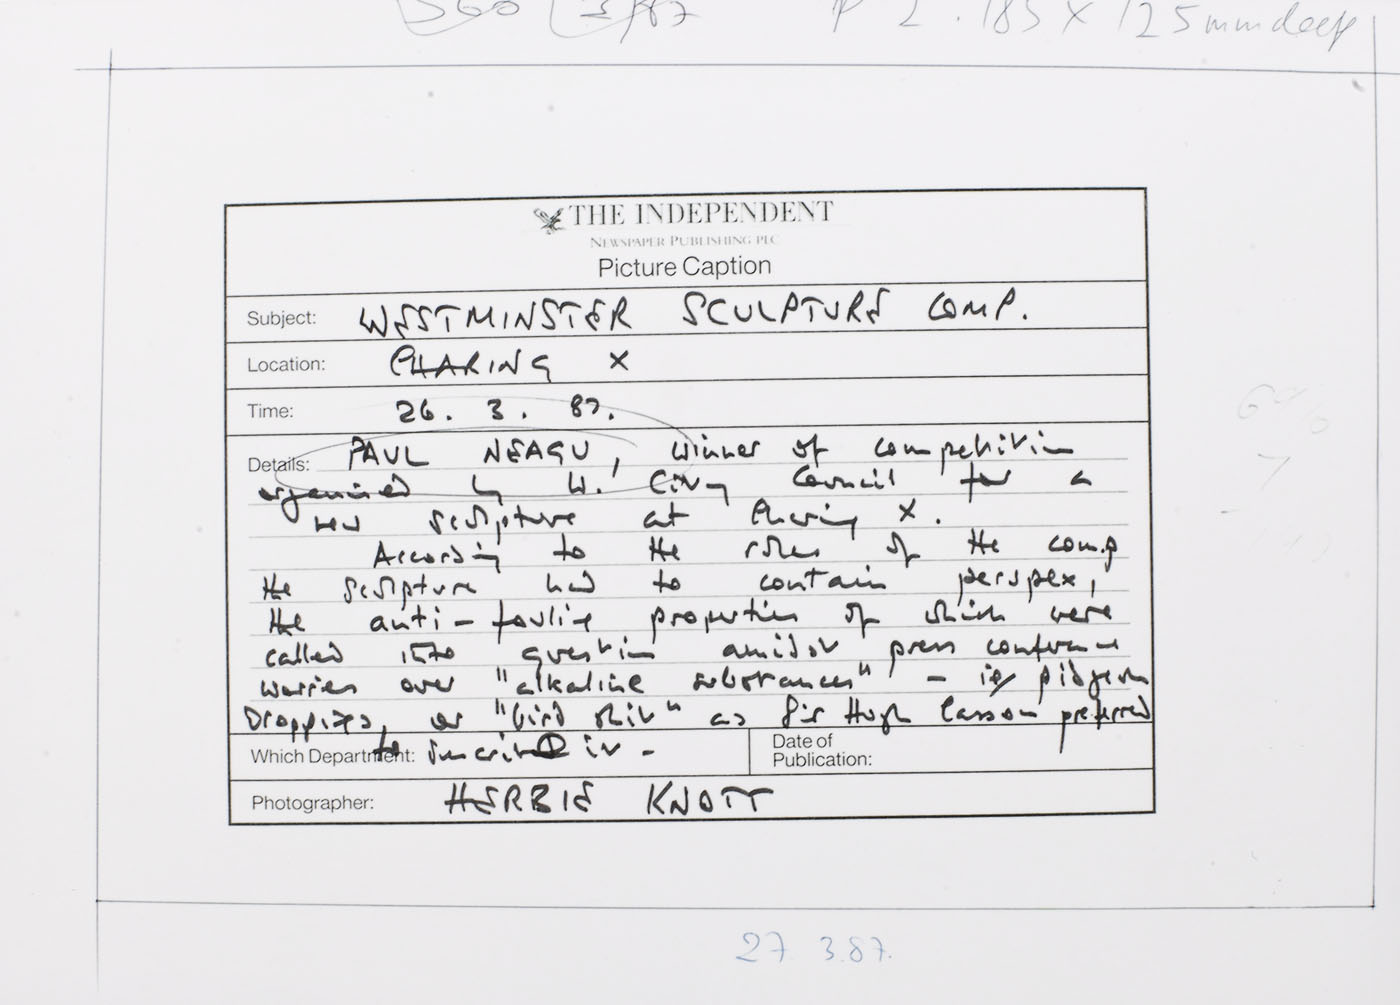 P 2. 185 X 125mm deep
THE INDEPENDENT
NEWSPAPER PUBLISHING PLC
Picture Caption
Subject: WESTMINSTER SCULPTURE COMP.
Location: CHARING X
Time: 26. 3. 87.
Details: PAUL NEAGU, winner of competition
organised by W. City Council for a
new sculpture at Charing X.
According to the rules of the comp
the sculpture had to contain perspex,
the anti-fouling properties of which were
called into question amidst press conference
worries over "alkaline substances" - ie pidgeon
Droppings, or "bird shit" as Sir Hugh Casson preferred
to describe it -
Which Department:
Date of
Publication:
Photographer: HERBIE KNOTT
27 3.87.